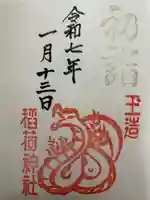 初詣
玉造
稲荷神社
令和七年
一月十三日